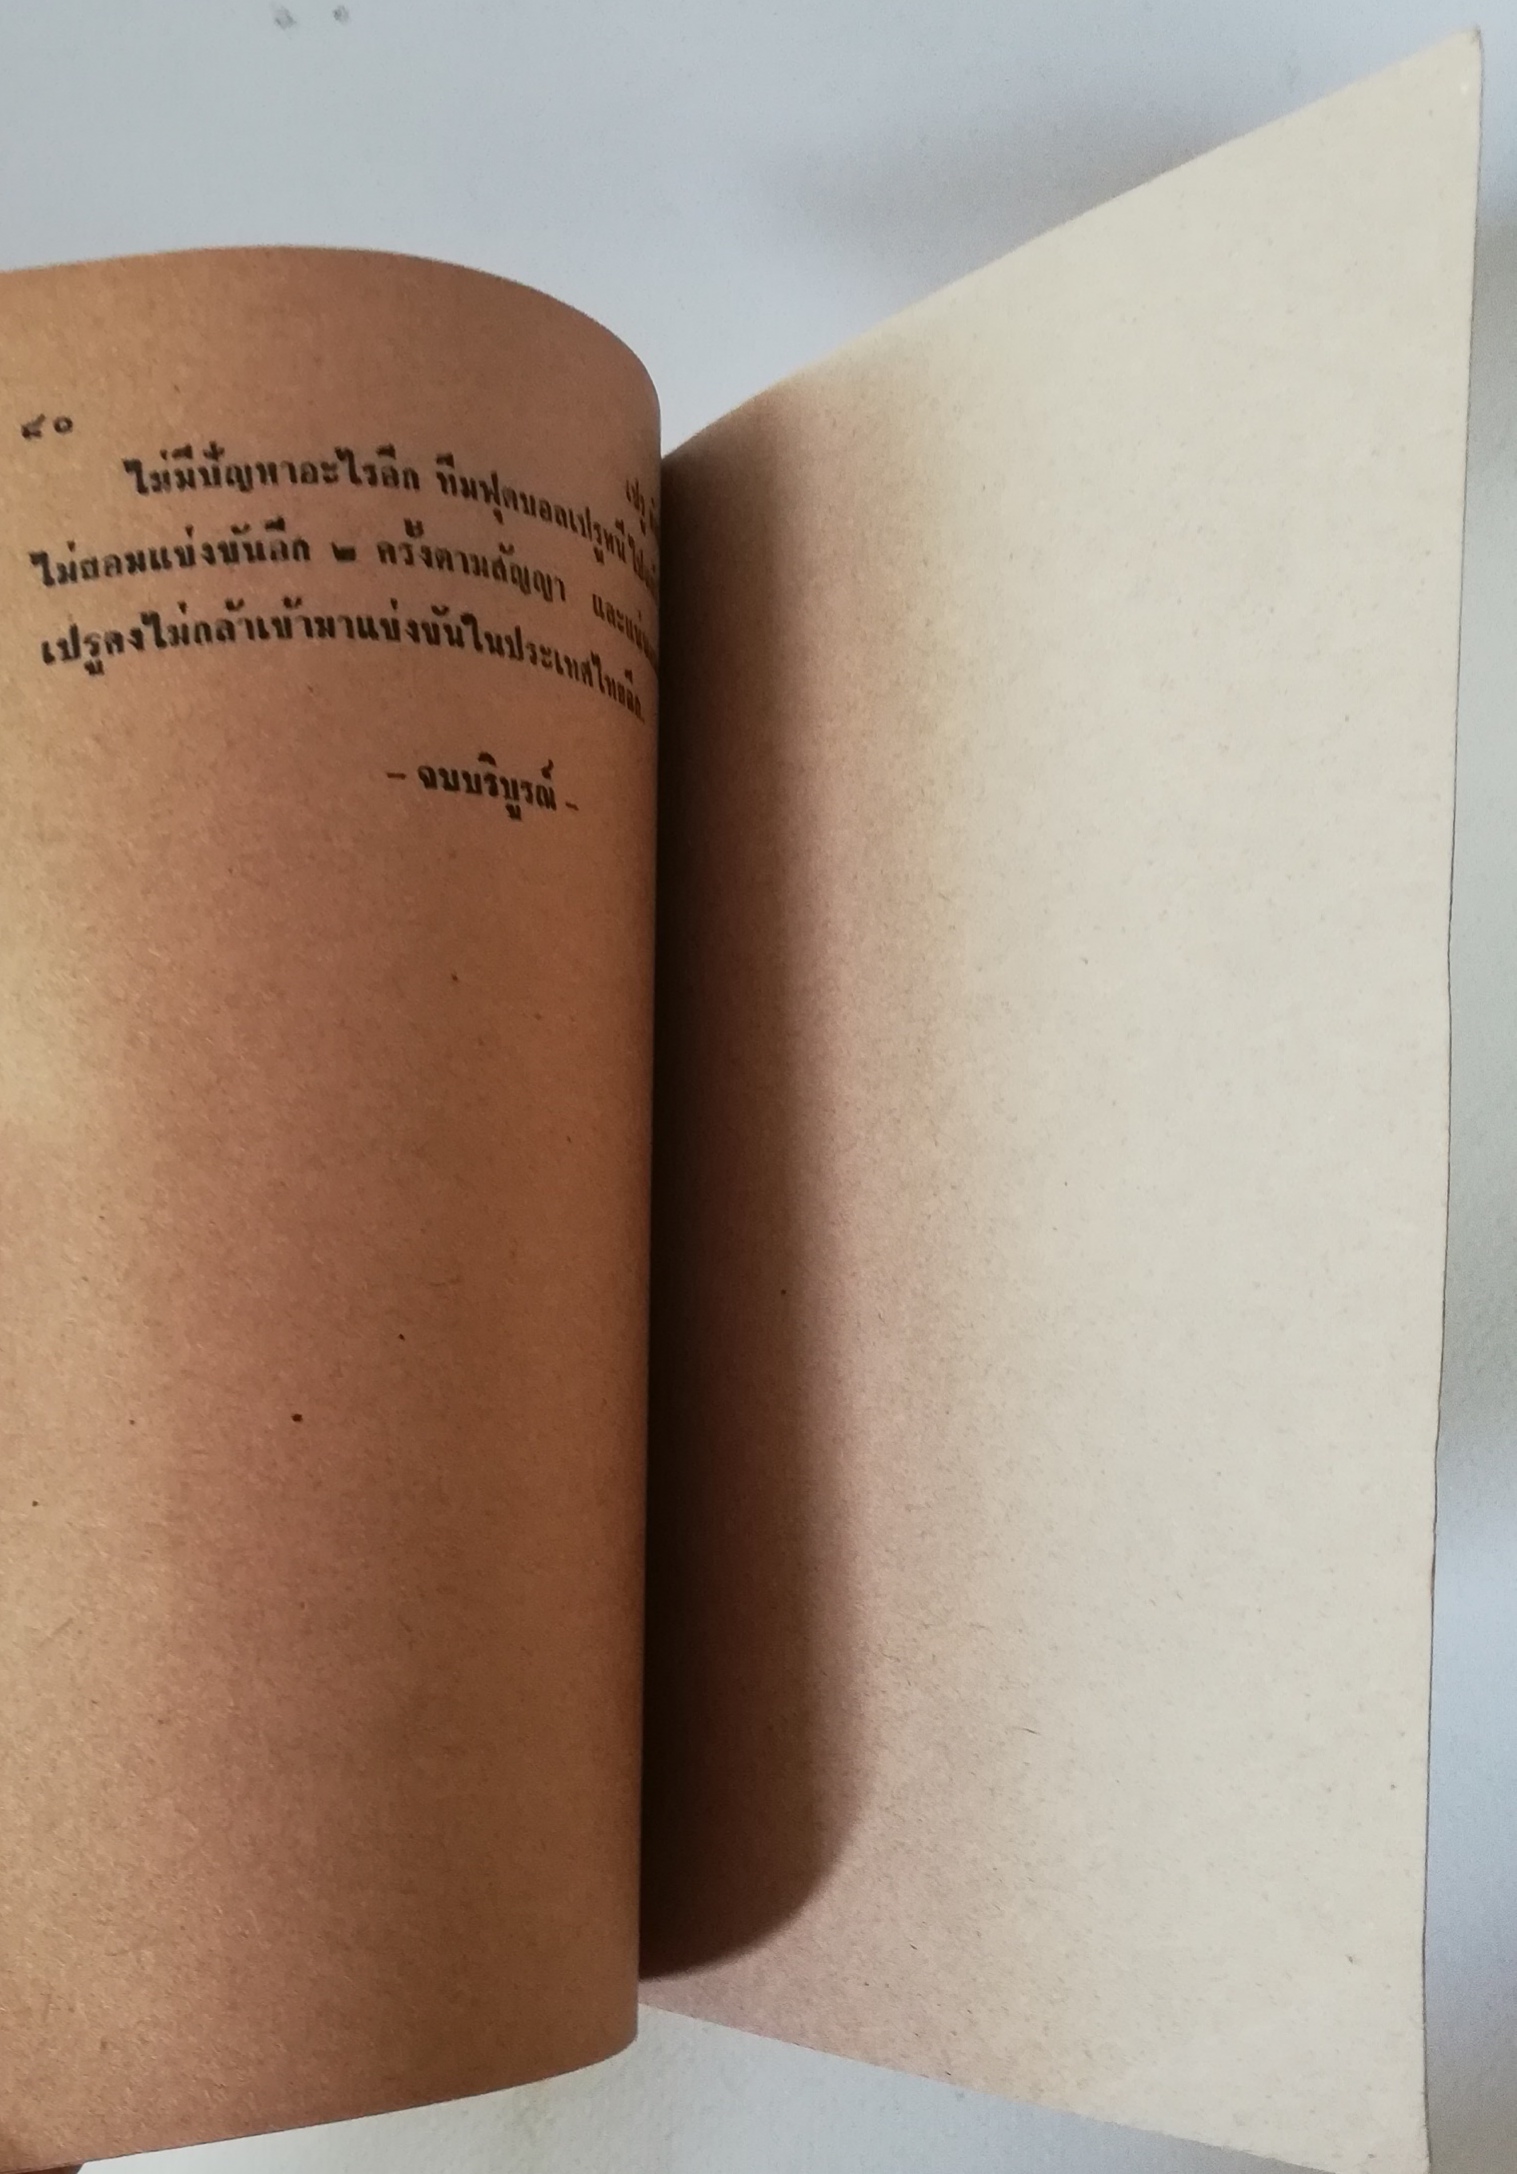 ๘๐
เปรู
ไม่มีปัญหาอะไรอีก ทีมฟุตบอลเปรูหนีไป
ไม่ยอมแข่งขันอีก ๒ ครั้งตามสัญญา และ
เปรูคงไม่กล้าเข้ามาแข่งขันในประเทศไทยอีก.
– จบบริบูรณ์ –